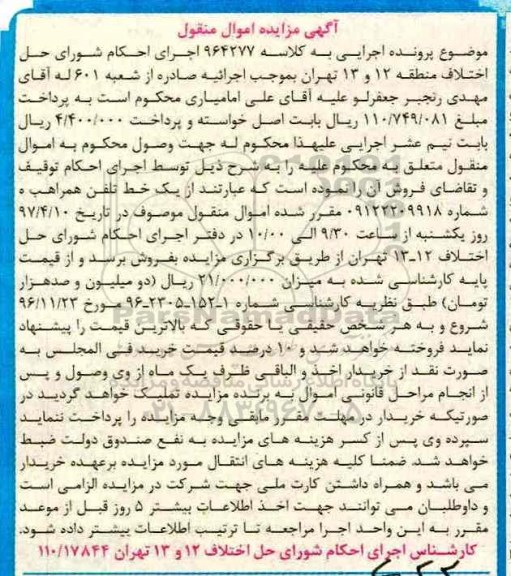 آگهی مزایده اموال منقول
موضوع پرونده اجرایی به کلاسه ۹۶۴۲۷۷ اجرای احکام شورای حل
اختلاف منطقه ۱۲ و ۱۳ تهران بموجب اجرائیه صادره از شعبه ۶۰۱ له آقای
مهدی رنجبر جعفرلو علیه آقای علی امامیاری محکوم است به پرداخت
مبلغ ۱۱۰/۷۴۹/۰۸۱ ریال بابت اصل خواسته و پرداخت ۴/۴۰۰/۰۰۰ ریال
بابت نیم عشر اجرایی علیهذا محکوم له جهت وصول محکوم به اموال
منقول متعلق به محکوم علیه را به شرح ذیل توسط اجرای احکام توقیف
و تقاضای فروش آن را نموده است که عبارتند از یک خط تلفن همراهب ه
شماره ۰۹۱۲۲۲۰۹۹۱۸ مقرر شده اموال منقول موصوف در تاریخ ۹۷/۴/۱۰
روز یکشنبه از ساعت ۹/۳۰ الی ۱۰/۰۰ در دفتر اجرای احکام شورای حل
اختلاف ۱۲-۱۳ تهران از طریق برگزاری مزایده بفروش برسد و از قیمت
پایه کارشناسی شده به میزان ۲۱/۰۰۰/۰۰۰ ریال (دو میلیون و صدهزار
تومان) طبق نظریه کارشناسی شماره ۱-۱۵۲-۲۳۰۵-۹۶ مورخ ۹۶/۱۱/۲۳
شروع و به هر شخص حقیقی یا حقوقی که بالاترین قیمت را پیشنهاد
نماید فروخته خواهد شد و ۱۰ درصد قیمت خرید فی المجلس به
صورت نقد از خریدار اخذ و الباقی ظرف یک ماه از وی وصول و پس
از انجام مراحل قانونی اموال به برنده مزایده تملیک خواهد گردید در
صورتیکه خریدار در مهلت مقرر مابقی وجه مزایده را پرداخت ننماید
سپرده وی پس از کسر هزینه های مزایده به نفع صندوق دولت ضبط
خواهد شد. ضمنا کلیه هزینه های انتقال مورد مزایده برعهده خریدار
می باشد و همراه داشتن کارت ملی جهت شرکت در مزایده الزامی است
و داوطلبان می توانند جهت اخذ اطلاعات بیشتر ۵ روز قبل از موعد
مقرر به این واحد اجرا مراجعه تا ترتیب اطلاعات بیشتر داده شود.
کارشناس اجرای احکام شورای حل اختلاف ۱۲ و ۱۳ تهران ۱۱۰/۱۷۸۴۴
ParsNamadData